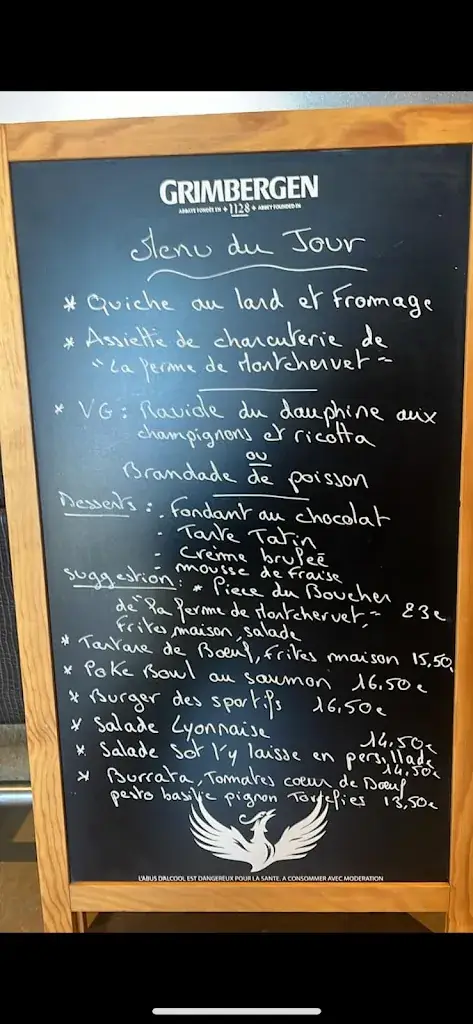 GRIMBERGEN
ABBAYE FONDÉE EN + 1128 + ABBEY FOUNDED IN
Menu du Jour
* Quiche au lard et Fromage
* Assiette de charcuterie de
"La ferme de Montchervet"
* VG: Raviole du dauphine aux
champignons et ricotta
ou
Brandade de poisson
Desserts : . Fondant au chocolat
- Tarte Tatin
- Crème brulée
- mousse de Fraise
Suggestion : * Piece du Boucher
de "la ferme de Montchervet", 23€
Frites maison, salade
* Tartare de Bœuf, Frites maison 15,50€
* Poke Bowl au saumon 16,50€
* Burger des sportifs 16,50€
* Salade Lyonnaise 14,50€
* Salade Sot l'y laisse en persillade 14,50€
* Burrata, Tommates coeur de Boeuf
pesto basilic pignon Torrefies 13,50€
L'ABUS D'ALCOOL EST DANGEREUX POUR LA SANTE. A CONSOMMER AVEC MODERATION